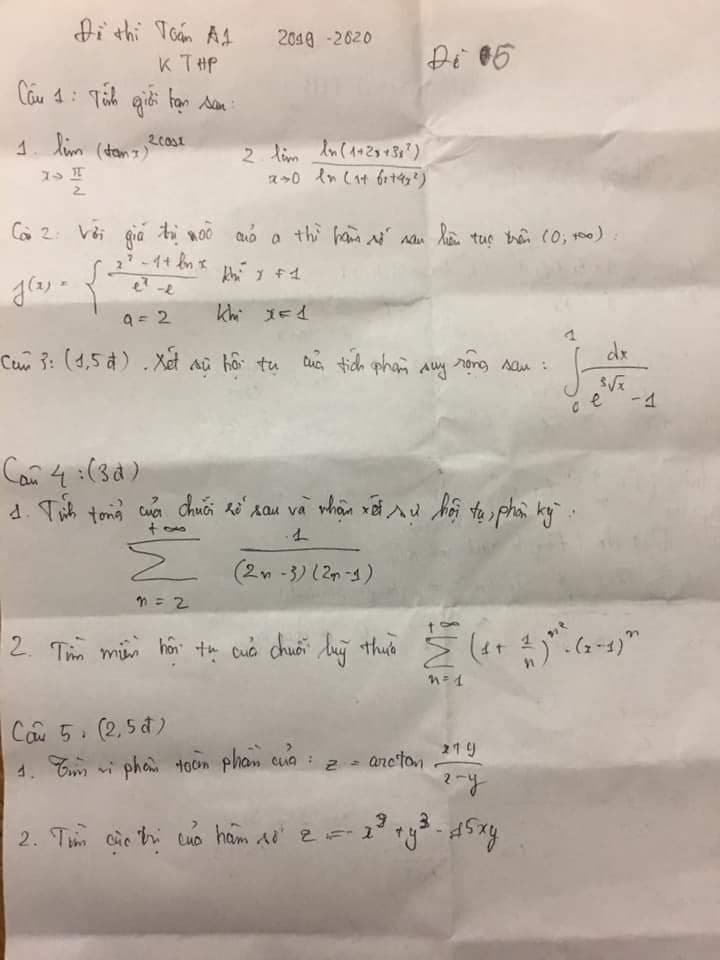 Đề thi Toán A1 2019-2020
KTHP
Đề 05
Câu 1: Tính giới hạn sau:
1. lim x→π/2 (tanx)^2cosx 2. lim x→0 ln(1+2x+3x²)/ln(1+6x+4x²)
Câu 2: Với giá trị nào của a thì hàm số sau liên tục trên (0;+∞):
f(x) = { (x²-1+lnx)/(e^x-e) khi x ≠ 1
a=2 khi x=1
Câu 3: (1,5đ). Xét sự hội tụ của tích phân suy rộng sau: ∫₀¹ dx/(e^∛x - 1)
Câu 4: (3đ)
1. Tính tổng của chuỗi số sau và nhận xét sự hội tụ, phân kỳ.
∑ n=2 +∞ 1/((2n-3)(2n-1))
2. Tìm miền hội tụ của chuỗi luỹ thừa ∑ n=1 +∞ (1+1/n)^n².(x-1)^n
Câu 5: (2,5đ)
1. Tìm vi phân toàn phần của: z = arctan (x+y)/(x-y)
2. Tìm cực trị của hàm số z = x³+y³-15xy